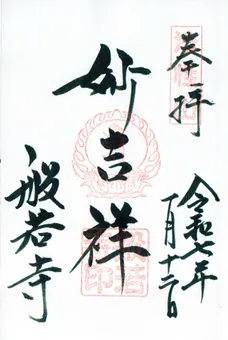 奉拝
令和七年
十月十二日
妙吉祥
般若寺